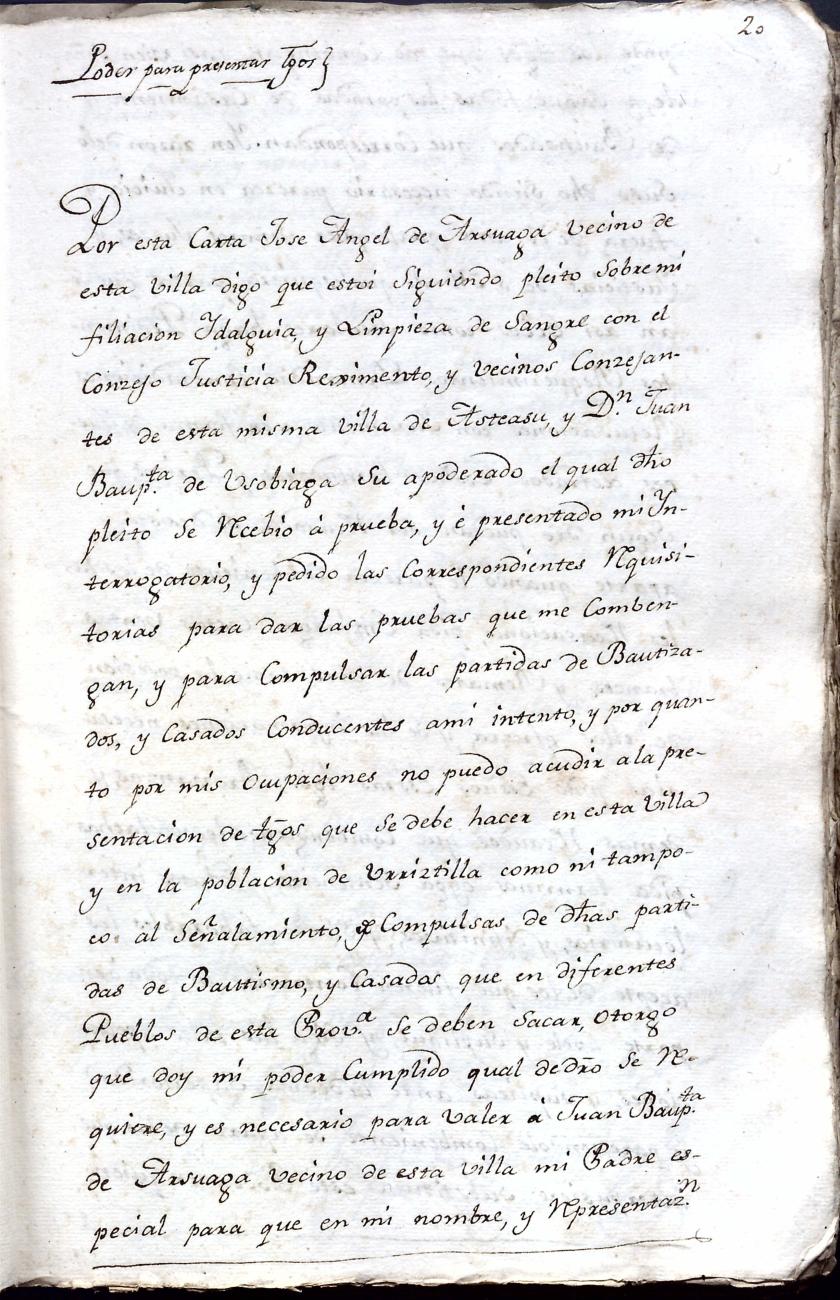 20
Poder para presentar tgos}
Por esta Carta Jose Angel de Arsuaga vecino de
esta villa digo que estoi Siguiendo pleito Sobre mi
filiacion Ydalguia, y Limpieza de Sangre con el
Conzejo Justicia Reximento, y vecinos Conzejan-
tes de esta misma villa de Asteasu, y D.n Juan
Baup.ta de Usobiaga Su apoderado el qual dho
pleito Se Rcebio á prueba, y é presentado mi Yn-
terrogatorio, y pedido las Correspondientes Rquisi-
torias para dar las pruebas que me Comben-
gan, y para Compulsar las partidas de Bautiza-
dos, y Casados Conducentes ami intento, y por quan-
to por mis Ocupaciones no puedo acudir ala pre-
sentacion de tgos que Se debe hacer en esta villa
y en la poblacion de Urriztilla como ni tampo-
co al Señalamiento, y Compulsas de dhas parti-
das de Bauttismo, y Casados que en diferentes
Pueblos de esta Prov.a Se deben Sacar, Otorgo
que doy mi poder Cumplido qual de dro Se R-
quiere, y es necesario para valer á Juan Baup.ta
de Arsuaga vecino de esta villa mi Padre es-
pecial para que en mi nombre, y Rpresentaz.n